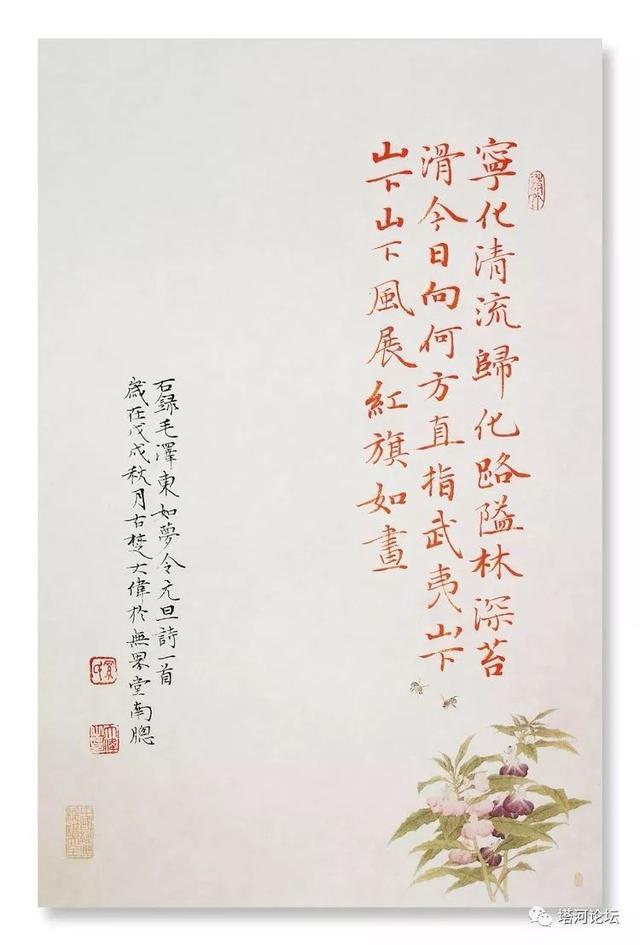 寧化清流歸化路隘林深苔
滑今日向何方直指武夷山下
山下山下風展紅旗如畫
右録毛澤東如夢令元旦詩一首
歲在戊戌秋月古楚大偉於無界堂南牕
塔河论坛